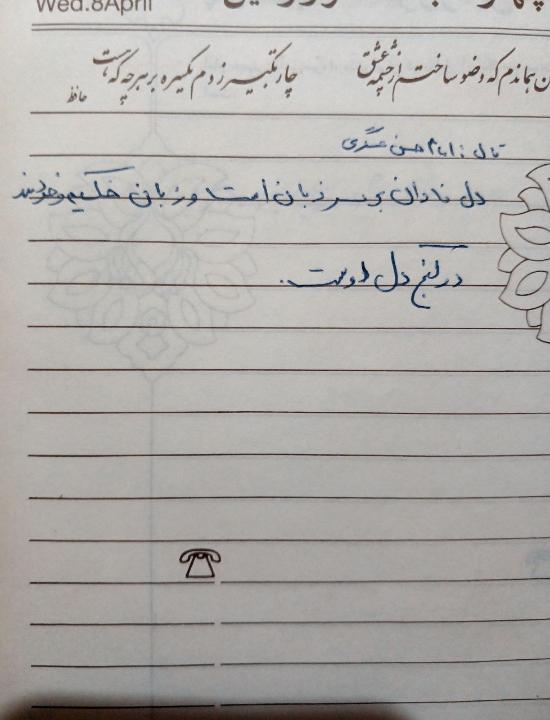 Wed.8April
من هماندم که وضو ساختم از چشمه عشق چار تکبیر زدم یکسره بر هر چه که هست
حافظ
قال : امام حسن عسگری
دل نادان بر سر زبان است و زبان حکیم و خردمند
در کنج دل اوست.